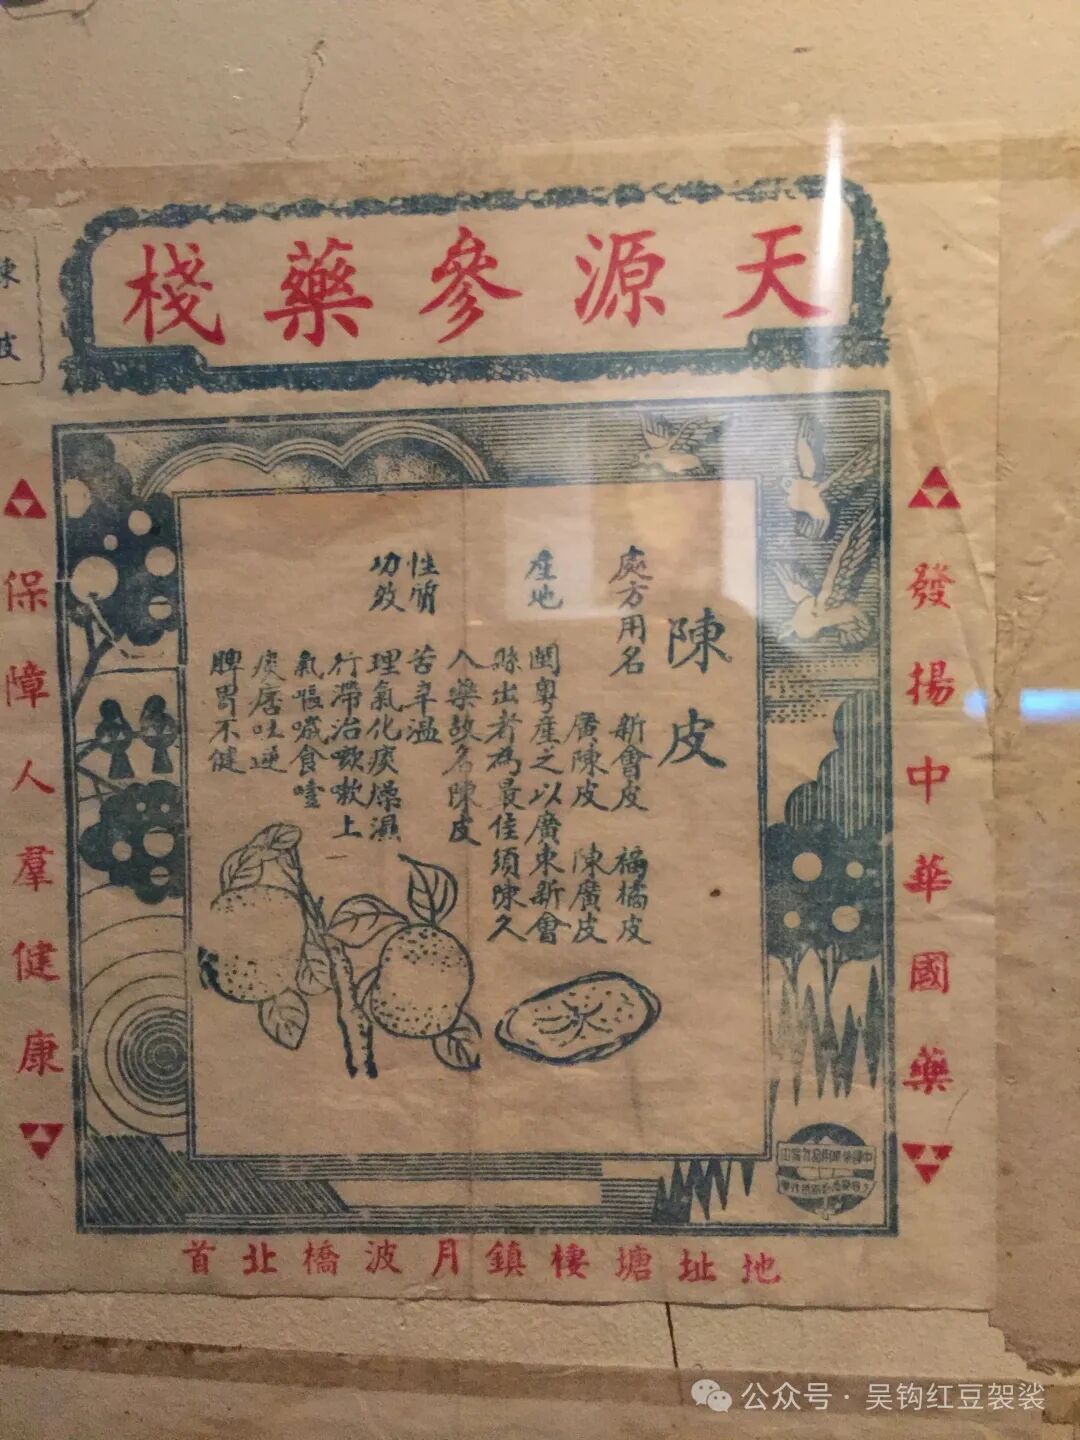 天源參藥棧
發揚中華國藥
陳皮
處方用名
新會皮 福橘皮
廣陳皮 陳廣皮
產地
閩粵產之以廣東新會
縣出者為最佳須陳久
入藥故名陳皮
性質
苦辛溫
功效
理氣化痰燥濕
行滯治嗽上
氣脹噦食噎
痰痞吐逆
脾胃不健
保障人羣健康
地址塘棲鎮月波橋北首
陳皮
公众号·吴钩红豆袈裟